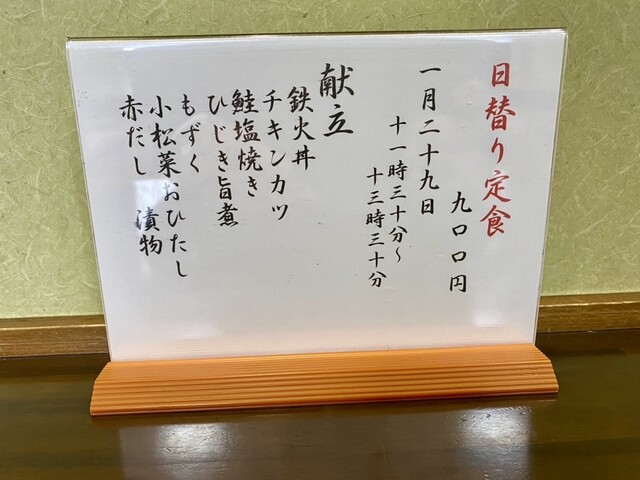 日替り定食
九〇〇円
一月二十九日
十一時三十分〜
十三時三十分
献立
鉄火丼
チキンカツ
鮭塩焼き
ひじき旨煮
もずく
小松菜おひたし
赤だし 漬物